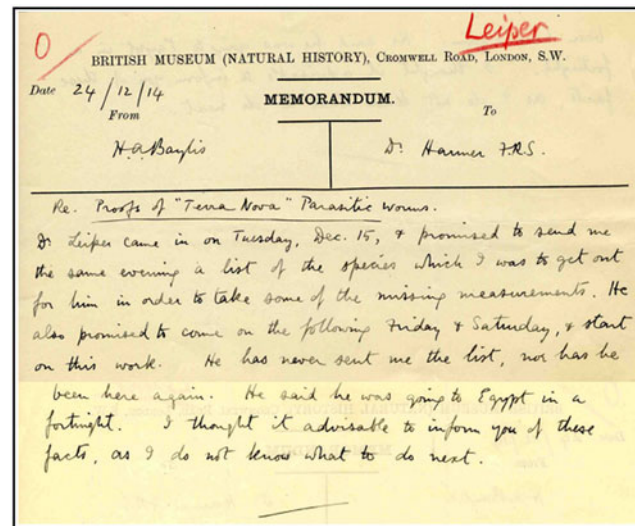 O
Leiper
BRITISH MUSEUM (NATURAL HISTORY), CROMWELL ROAD, LONDON, S.W.
Date 24/12/14
MEMORANDUM.
From
To
H.A. Baylis
Dr. Harmer F.R.S.
Re. Proofs of "Terra Nova" Parasitic worms.
Dr. Leiper came in on Tuesday, Dec. 15, & promised to send me
the same evening a list of the species which I was to get out
for him in order to take some of the missing measurements. He
also promised to come on the following Friday & Saturday, & start
on this work. He has never sent me the list, nor has he
been here again. He said he was going to Egypt in a
fortnight. I thought it advisable to inform you of these
facts, as I do not know what to do next.